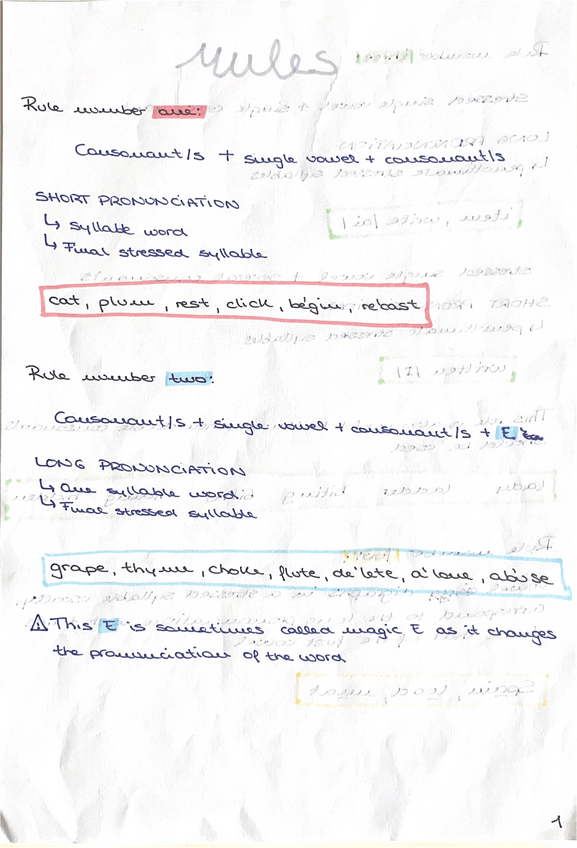 rules
Rule number one:
Consonant/s + single vowel + consonant/s
SHORT PRONUNCIATION
↳ syllable word
↳ Final stressed syllable
cat, plum, rest, click, be'gin,
Rule number two:
Consonant/s + single vowel + consonant/s + E
LONG PRONUNCIATION
↳ One syllable word
↳ Final stressed syllable
grape, thyme, choke, flute, de'lete, a'lone, ab'use
⚠ This E is sometimes called magic E as it changes
the pronunciation of the word
1